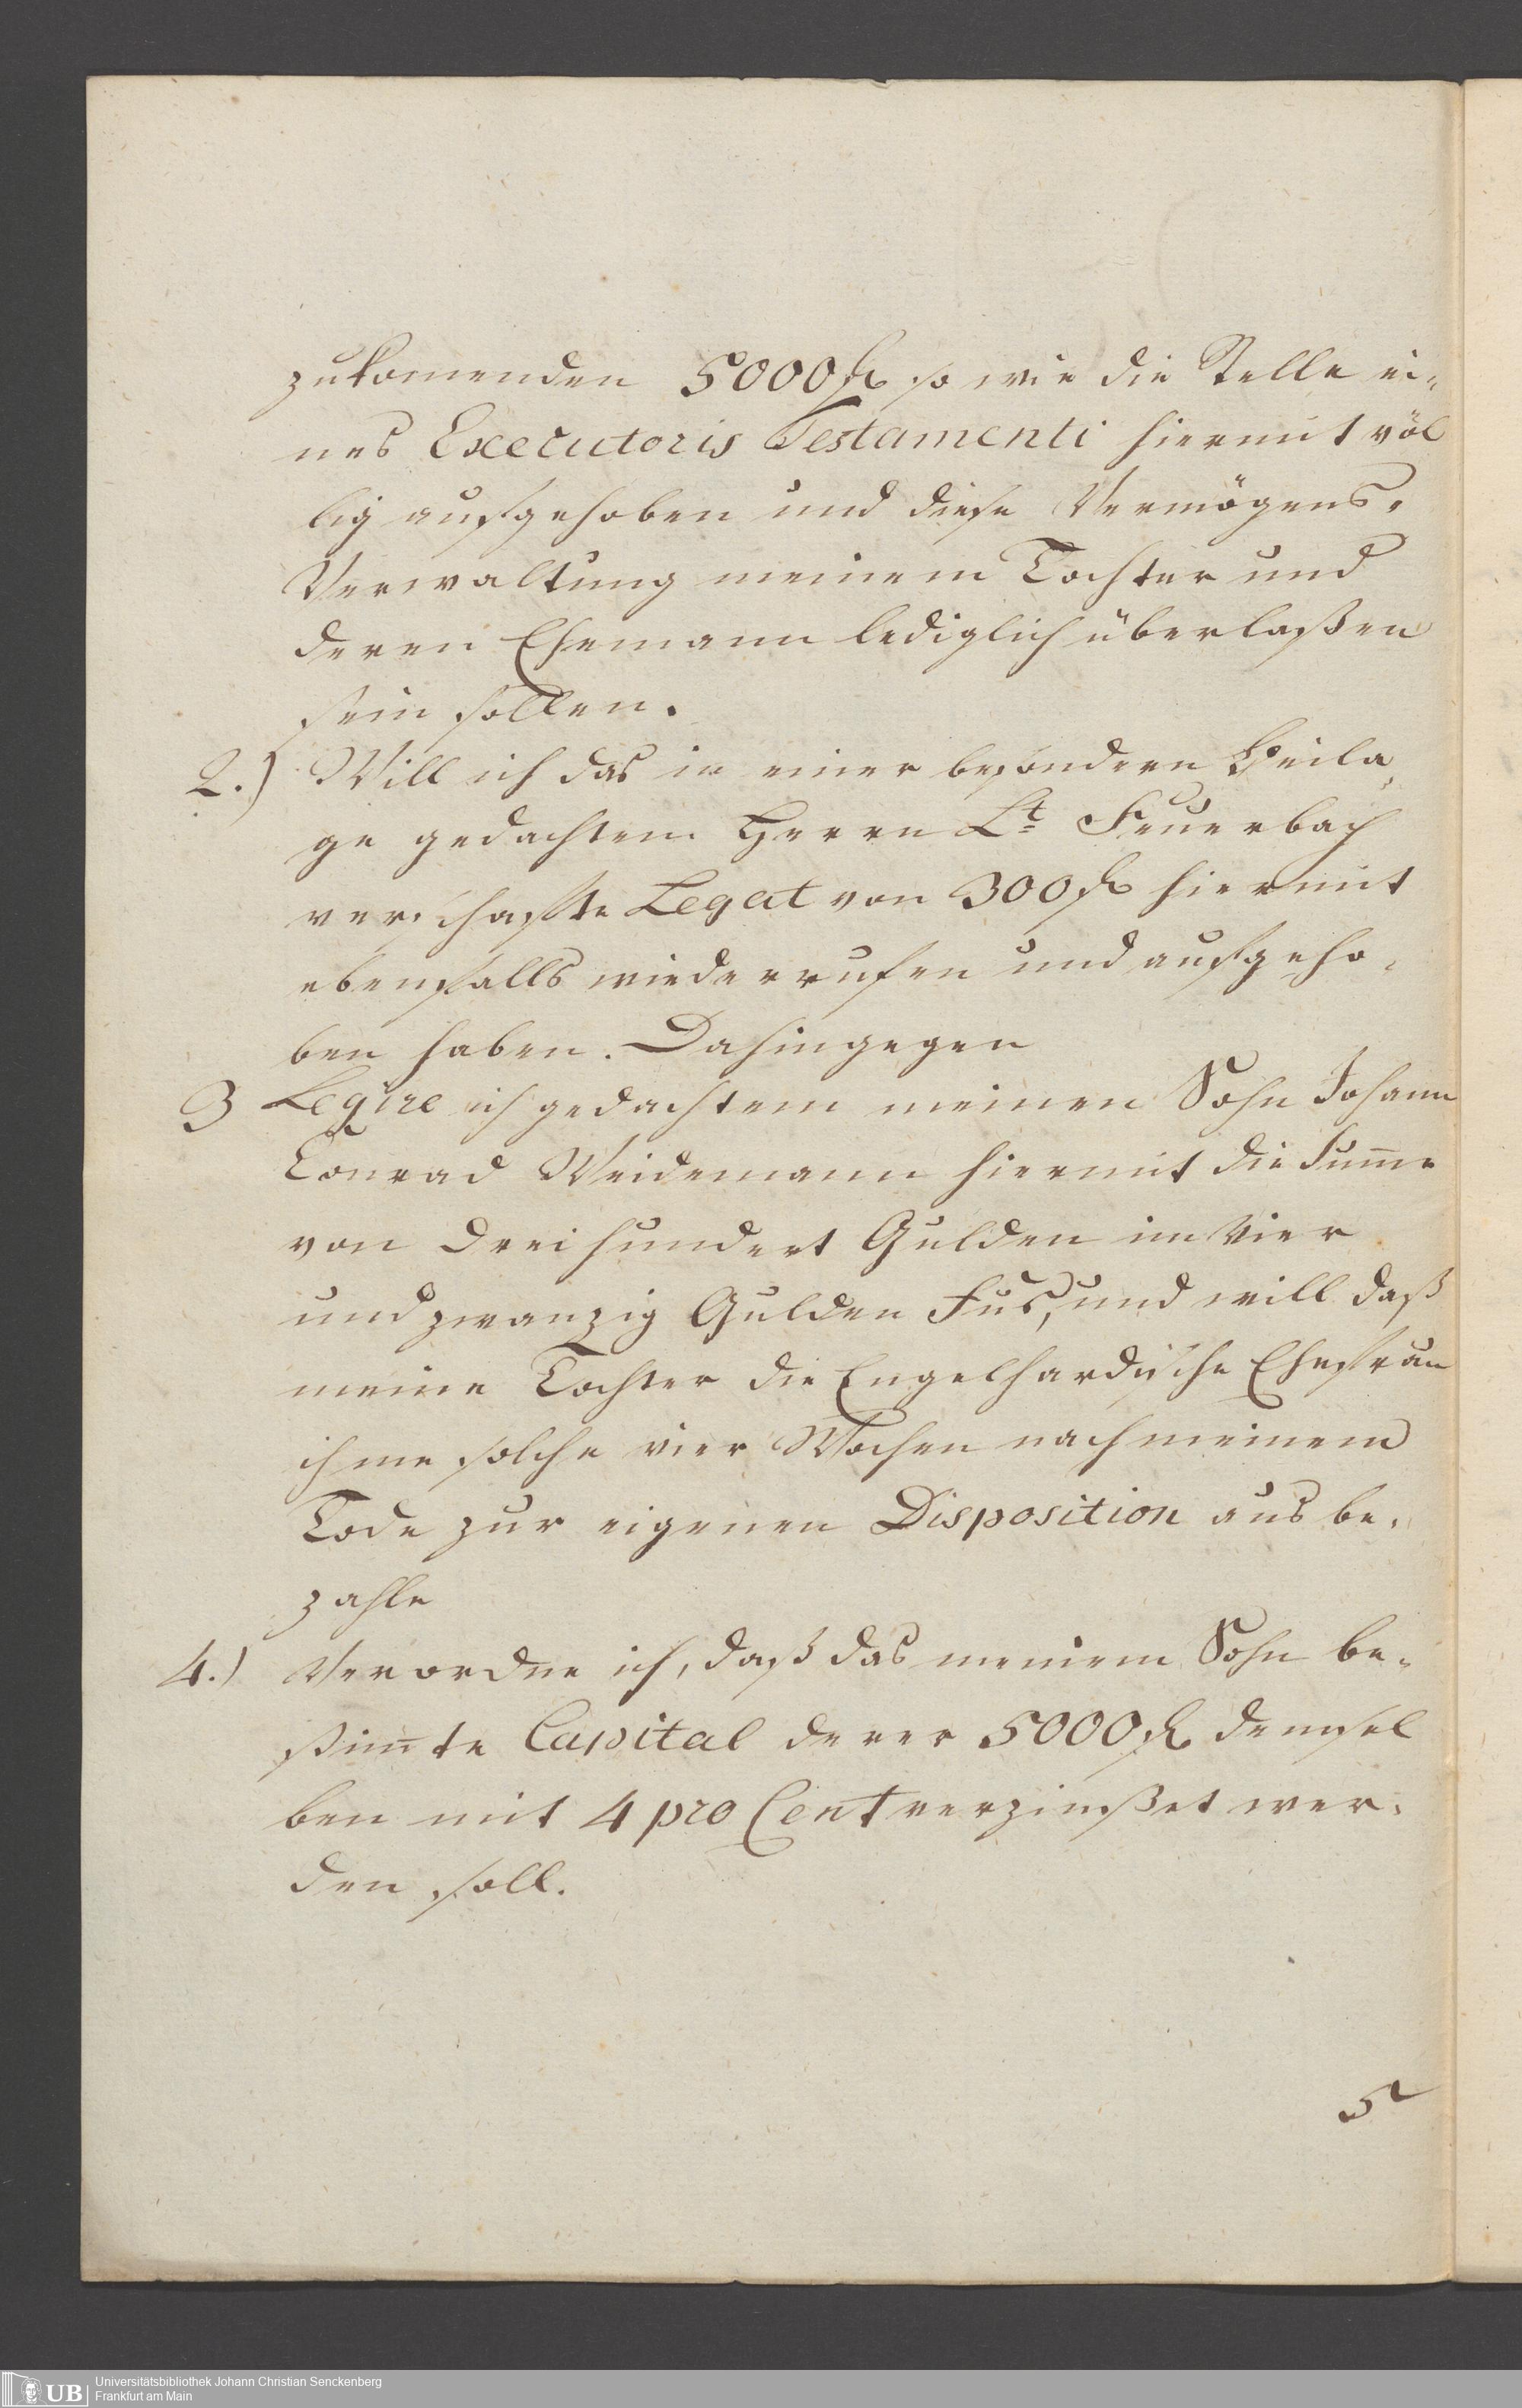 zukomenden 5000 fl so wie die Stelle ei-
nes Executoris Testamenti hiermit völ
lig aufgehoben und diese Vermögens-
Verwaltung meinem Tochter und
deren Ehemann lediglich überlaßen
sein sollen.
2.) Will ich das in einer besondern Beila-
ge gedachtem Herrn Lt Feuerbach
verschaffte Legat von 300 fl hiermit
ebenfalls wiederrufen und aufgeho-
ben haben. Dahingegen
3 Legire ich gedachtem meinen Sohn Johann
Conrad Weidemann hiermit die Sum̅e
von Dreihundert Gulden im vier
und zwanzig Gulden Fus, und will daß
meine Tochter die Engelhardische Ehefrau
ihme solche vier Wochen nach meinem
Tode zur eigenen Disposition aus be-
zahle
4.) Verordne ich, daß das meinem Sohn be-
stim̅te Capital derer 5000 fl demsel
ben mit 4 pro Cent verzinßet wer-
den soll.
5
UB Universitätsbibliothek Johann Christian Senckenberg
Frankfurt am Main